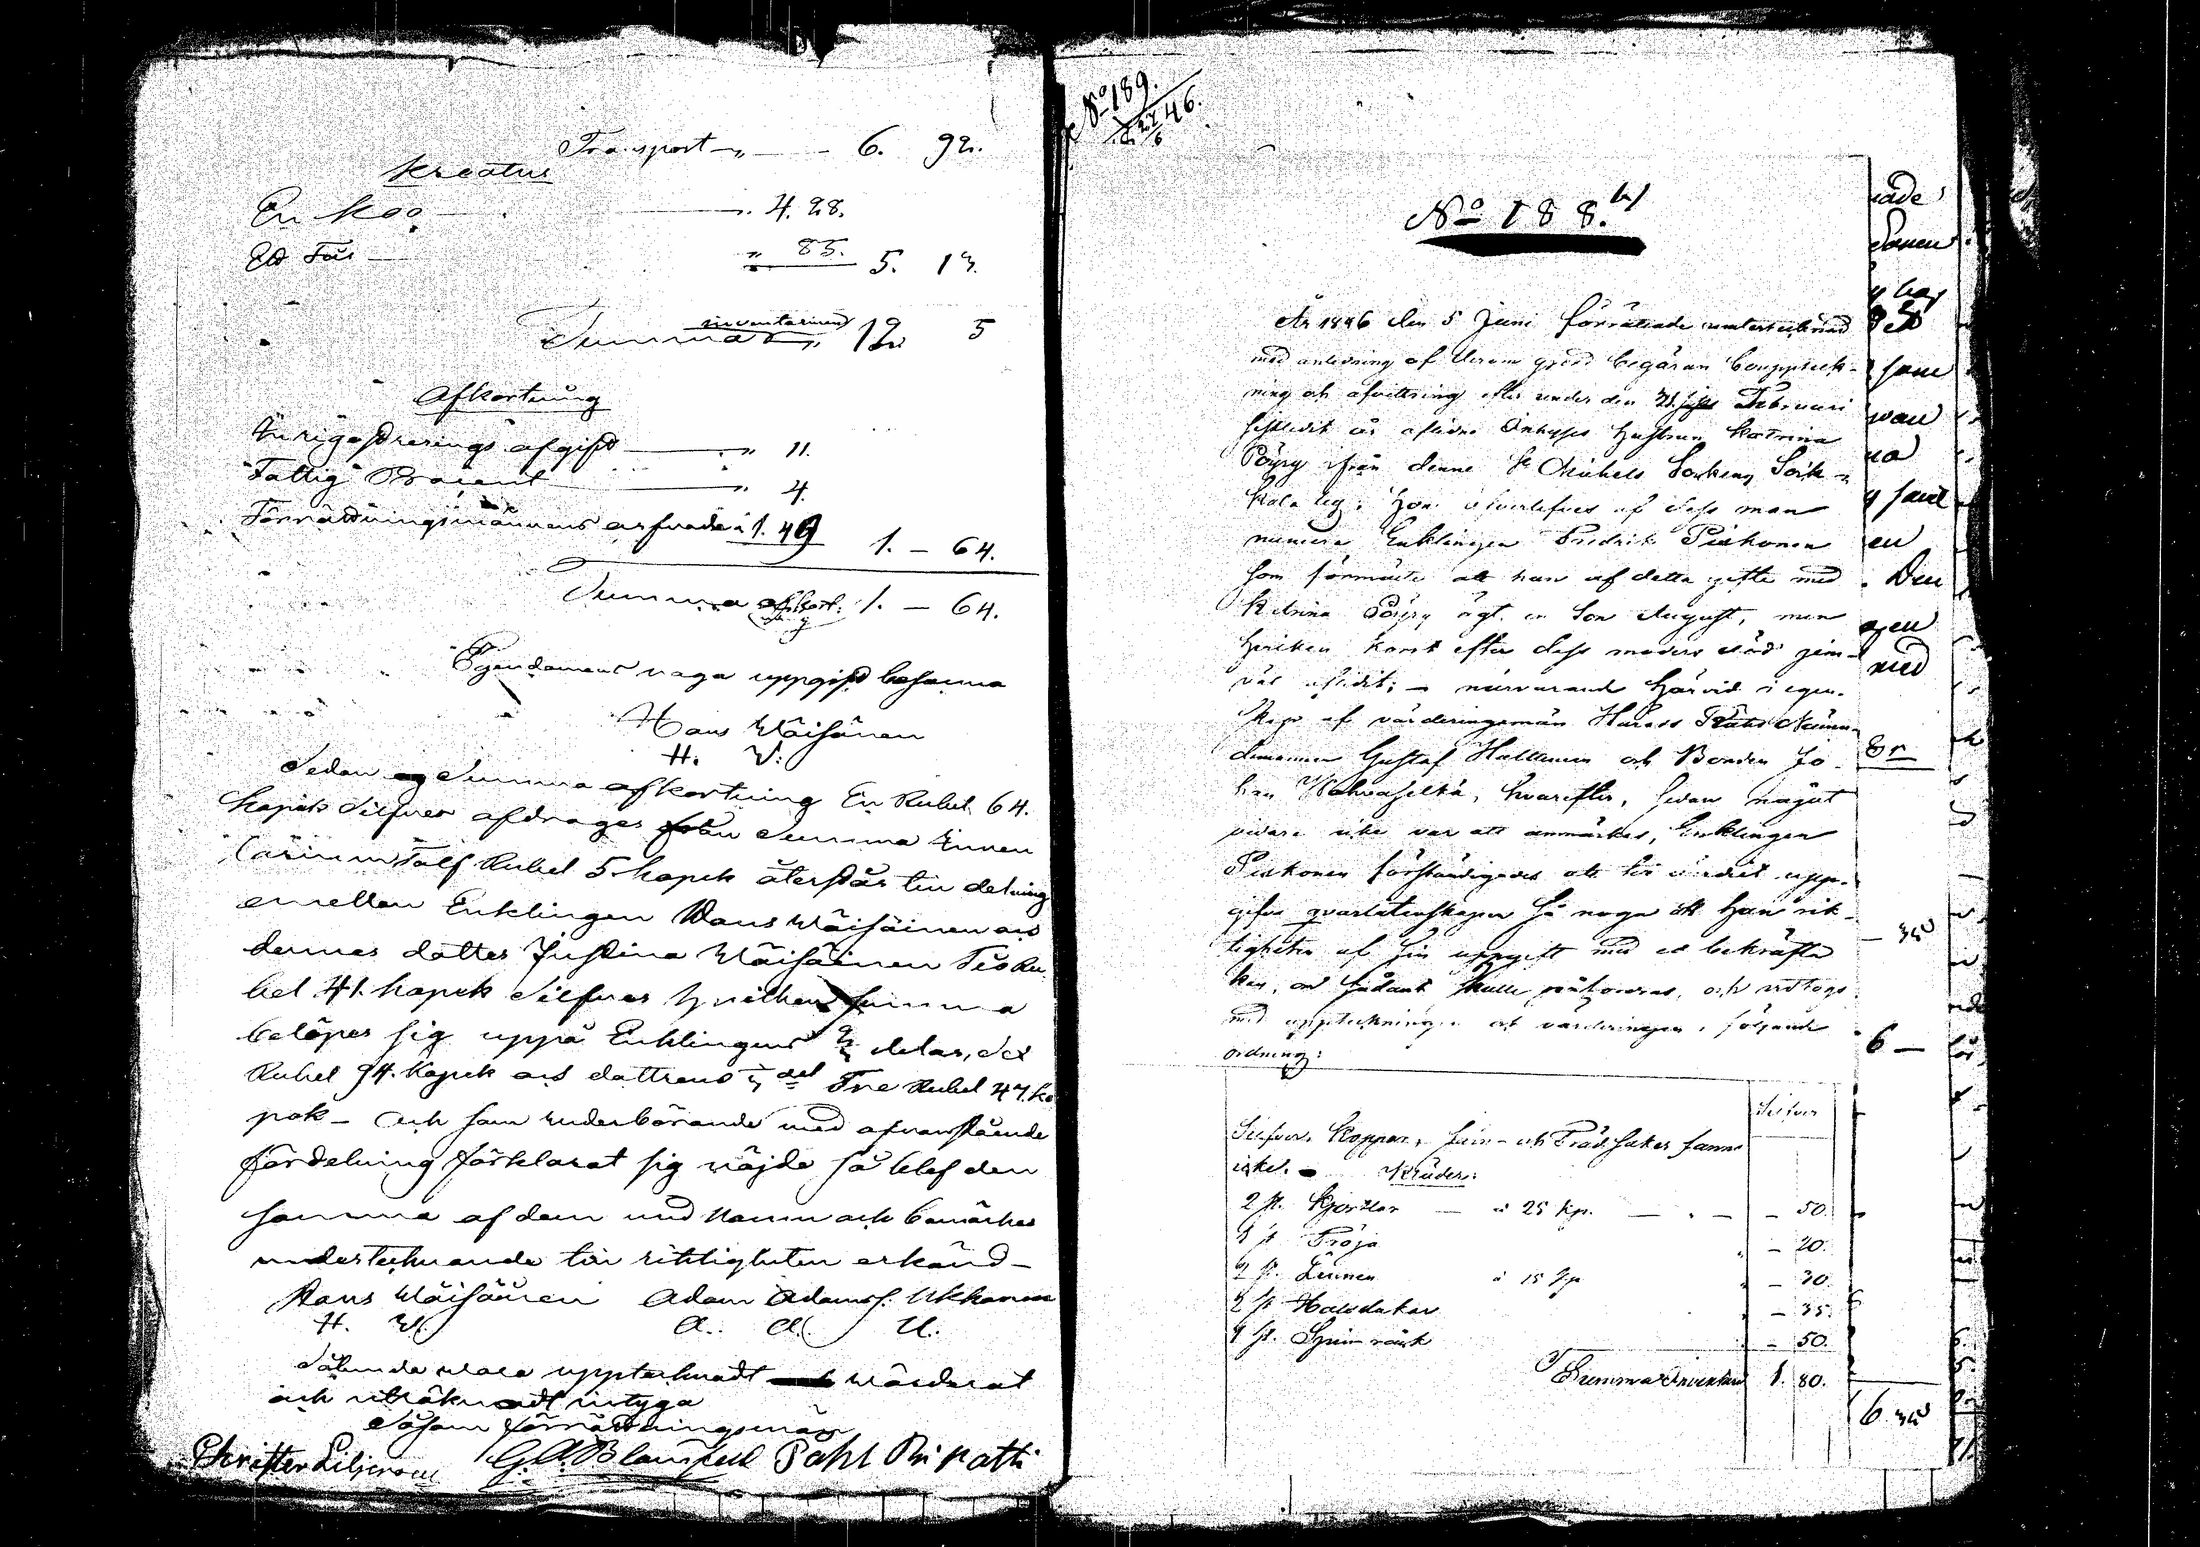 Transport „ — 6. 92.
Kreatur
En Koo — „ 4. 28.
Ett Får — „ 85. 5. 13.
Summa inventarium „ 12. 5
Afkortning
„ 11.
Fattig Procent — „ 4.
Förrättningsmännens arfvode „ 1. 49 1. — 64.
Summa afkortning 1. — 64.
Egendomens noga uppgift besanna
Hans Wäisänen
H. W.
Sedan Summa afkortning En Rubel 64.
Kopek Silfver afdrages från Summa Inven
tarium Tolf Rubel 5 kopek återstår till delning
emellan Enklingen Hans Wäisäinen och
dennes dotter Justina Wäisäinen Tio Ru
bel 41. kopek Silfver hvilken summa
belöper sig uppå Enklingens 2/3 delar, Sex
Rubel 94. Kopek och dottrens 1/3 del Tre Rubel 47. Ko
pek — och som vederbörande med ofvanstående
fördelning förklarat sig nöjde så blef den
samma af dem med Namn och bomärkes
undertecknande till riktigheten erkänd —
Hans Wäisäinen Adam Adamsf. Ukkonen
H. W. A. A. U.
Sålunda vara upptecknadt wärderat
och uträknadt intyga
Såsom förrättningsmän
Christer Liljeroos G. A. Blomfelt Pahl Ripatti
No 189.
46.
No 188. b/
År 1846 den 5 Juni förrättade undertecknad
med anledning af derom gjord begäran bouppteck-
ning och afvittring efter under den 21 Februari
sistledit år aflidne Inhyses hustrun Katrina
Pöyry ifrån denne St Michels Sockens Soik-
kala by. Hon öfverlefves af dess man
numera Enklingen Fredrik Piskonen
som förmälte att han af detta gifte med
Katrina Pöyry ägt en Son August, men
hvilken kort efter dess moders död jem-
väl aflidit; — närvarande härvid i egen-
skap af värderingsmän Härads Rätts Nämn-
demannen Gustaf Halttunen och Bonden Jo-
han Wahvaselkä, hvarefter, sedan något
vidare icke var att anmärkas, Enklingen
Piskonen förständigades att till värdet upp-
gifva qvarlåtenskapen så noga att han rik-
tigheten af sin uppgift med ed bekräfta
kan, om sådant skulle påfordras, och vidtogs
med uppteckningen och värderingen i följande
ordning:
Silfver
Silfver, Koppar, Jern- och Träd saker fanns
icke. — Kläder:
2 st. Kjortlar — à 25 kp. — — 50.
1 st Tröja — 20.
2 st. Linnen à 15 kp — 30.
2 st Halsdukar — 35.
1 st. Spinnråck — 50.
Summa Inventarii 1. 80.
som
wan
samt
en
Den
gen
med
6 —
6